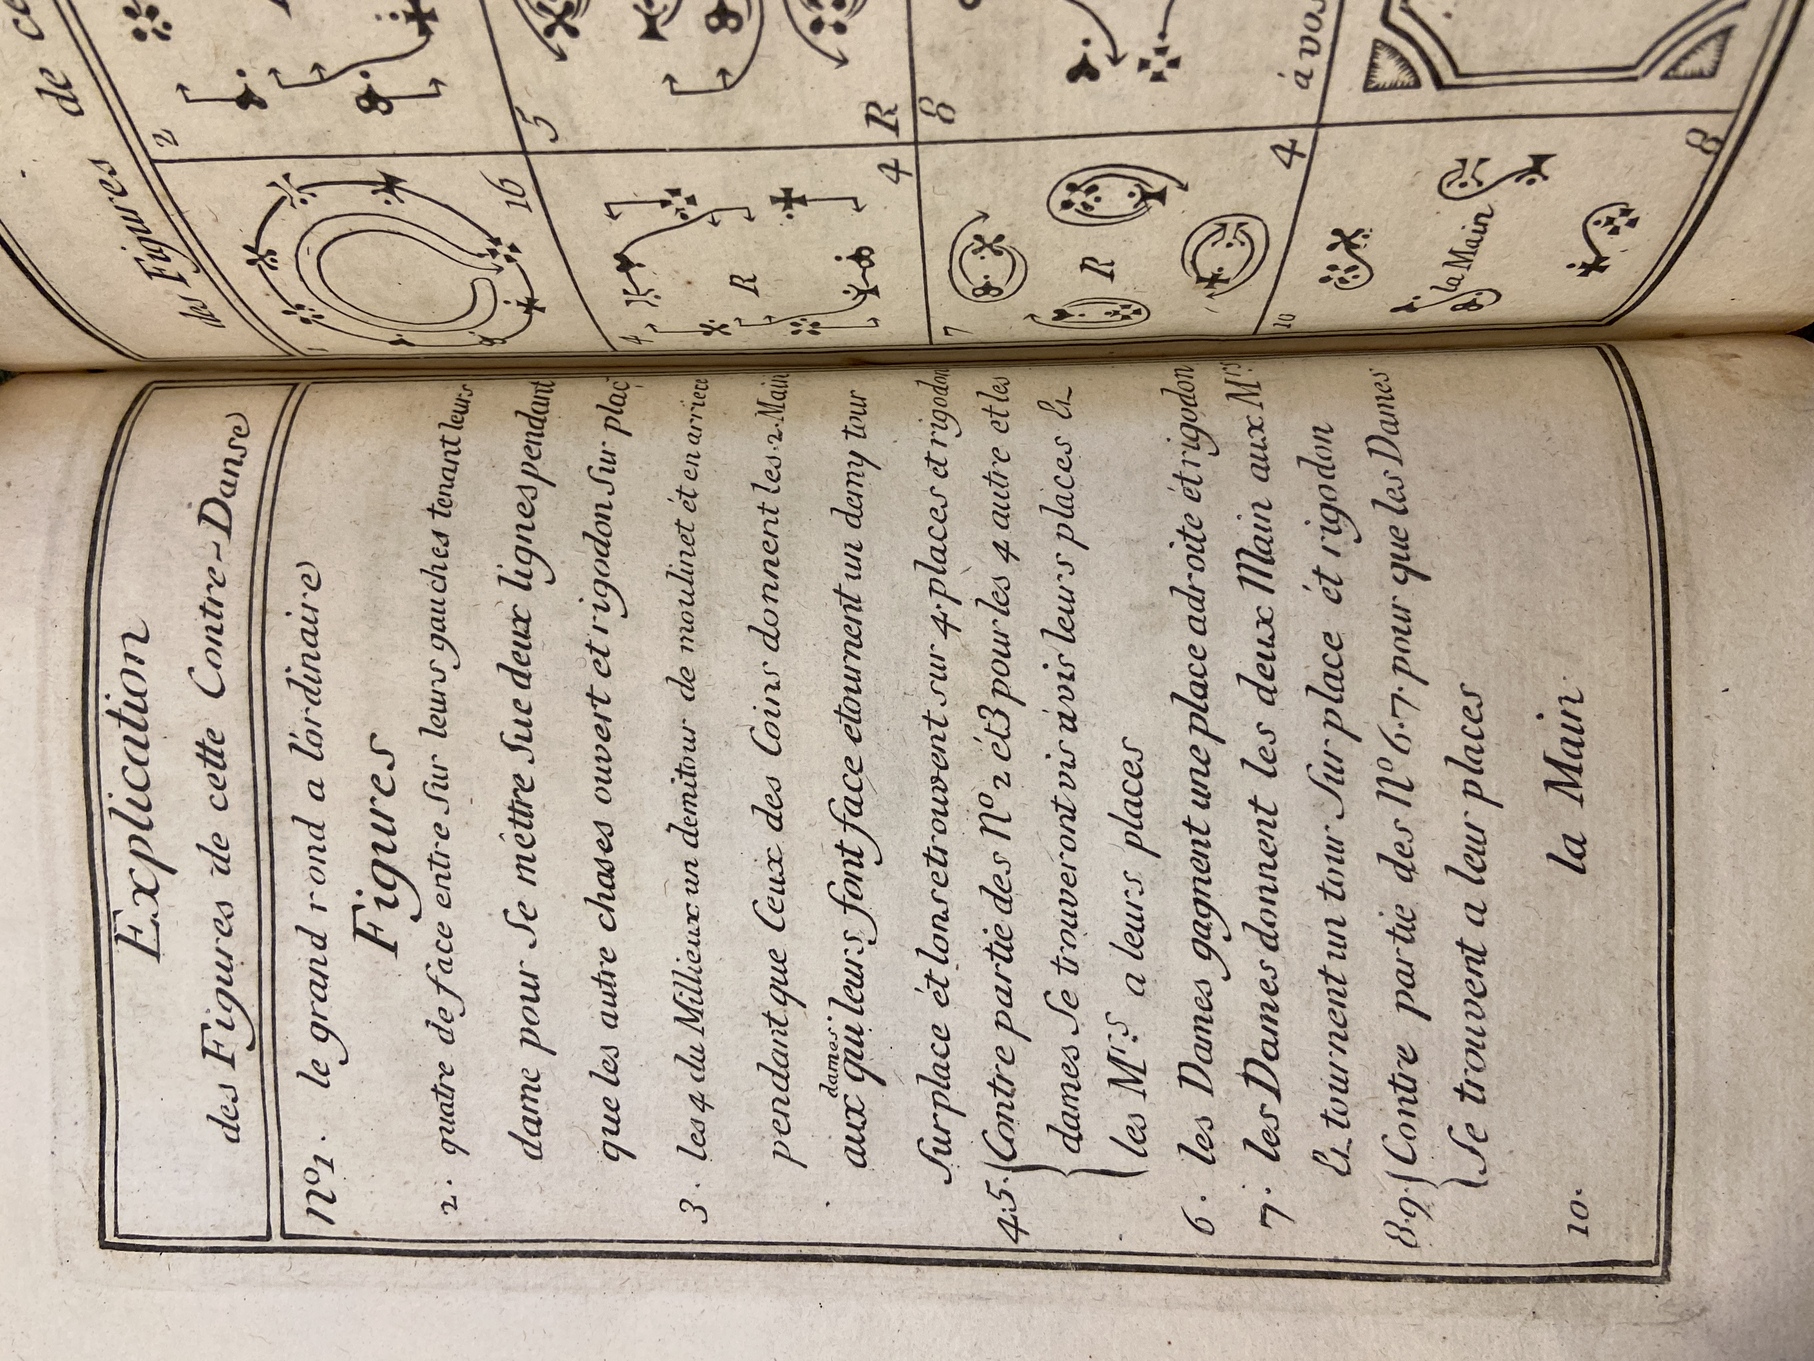 Explication
des Figures de cette Contre-Danse
nº1. le grand rond a l'ordinaire
Figures
2. quatre de face entre sur leurs gauches tenant leurs
dame pour se méttre sue deux lignes pendant
que les autre chases ouvert et rigodon sur plac
3. les 4 du Millieux un demitour de moulinet ét en arriere
pendant que Ceux des Coins donnent les 2 Main
dames
aux qui leurs font face etournent un demy tour
sur place ét lons etrouvent sur 4 places et rigodon
4.5. Contre partie des Nº 2 ét 3 pour les 4 autre et les
dames se trouveront vis ávis leurs places &
les Mrs a leurs places
6. les Dames gagnent une place adroite ét rigodon
7. les Dames donnent les deux Main aux Mrs
& tournent un tour sur place ét rigodon
8.9. Contre partie des Nº 6.7. pour que les Dames
se trouvent a leur places
10. la Main
des Figures de ce
des Figures
1
16
2
4
R
4
5
R
7
R
4
8
á vos
10
la Main
8